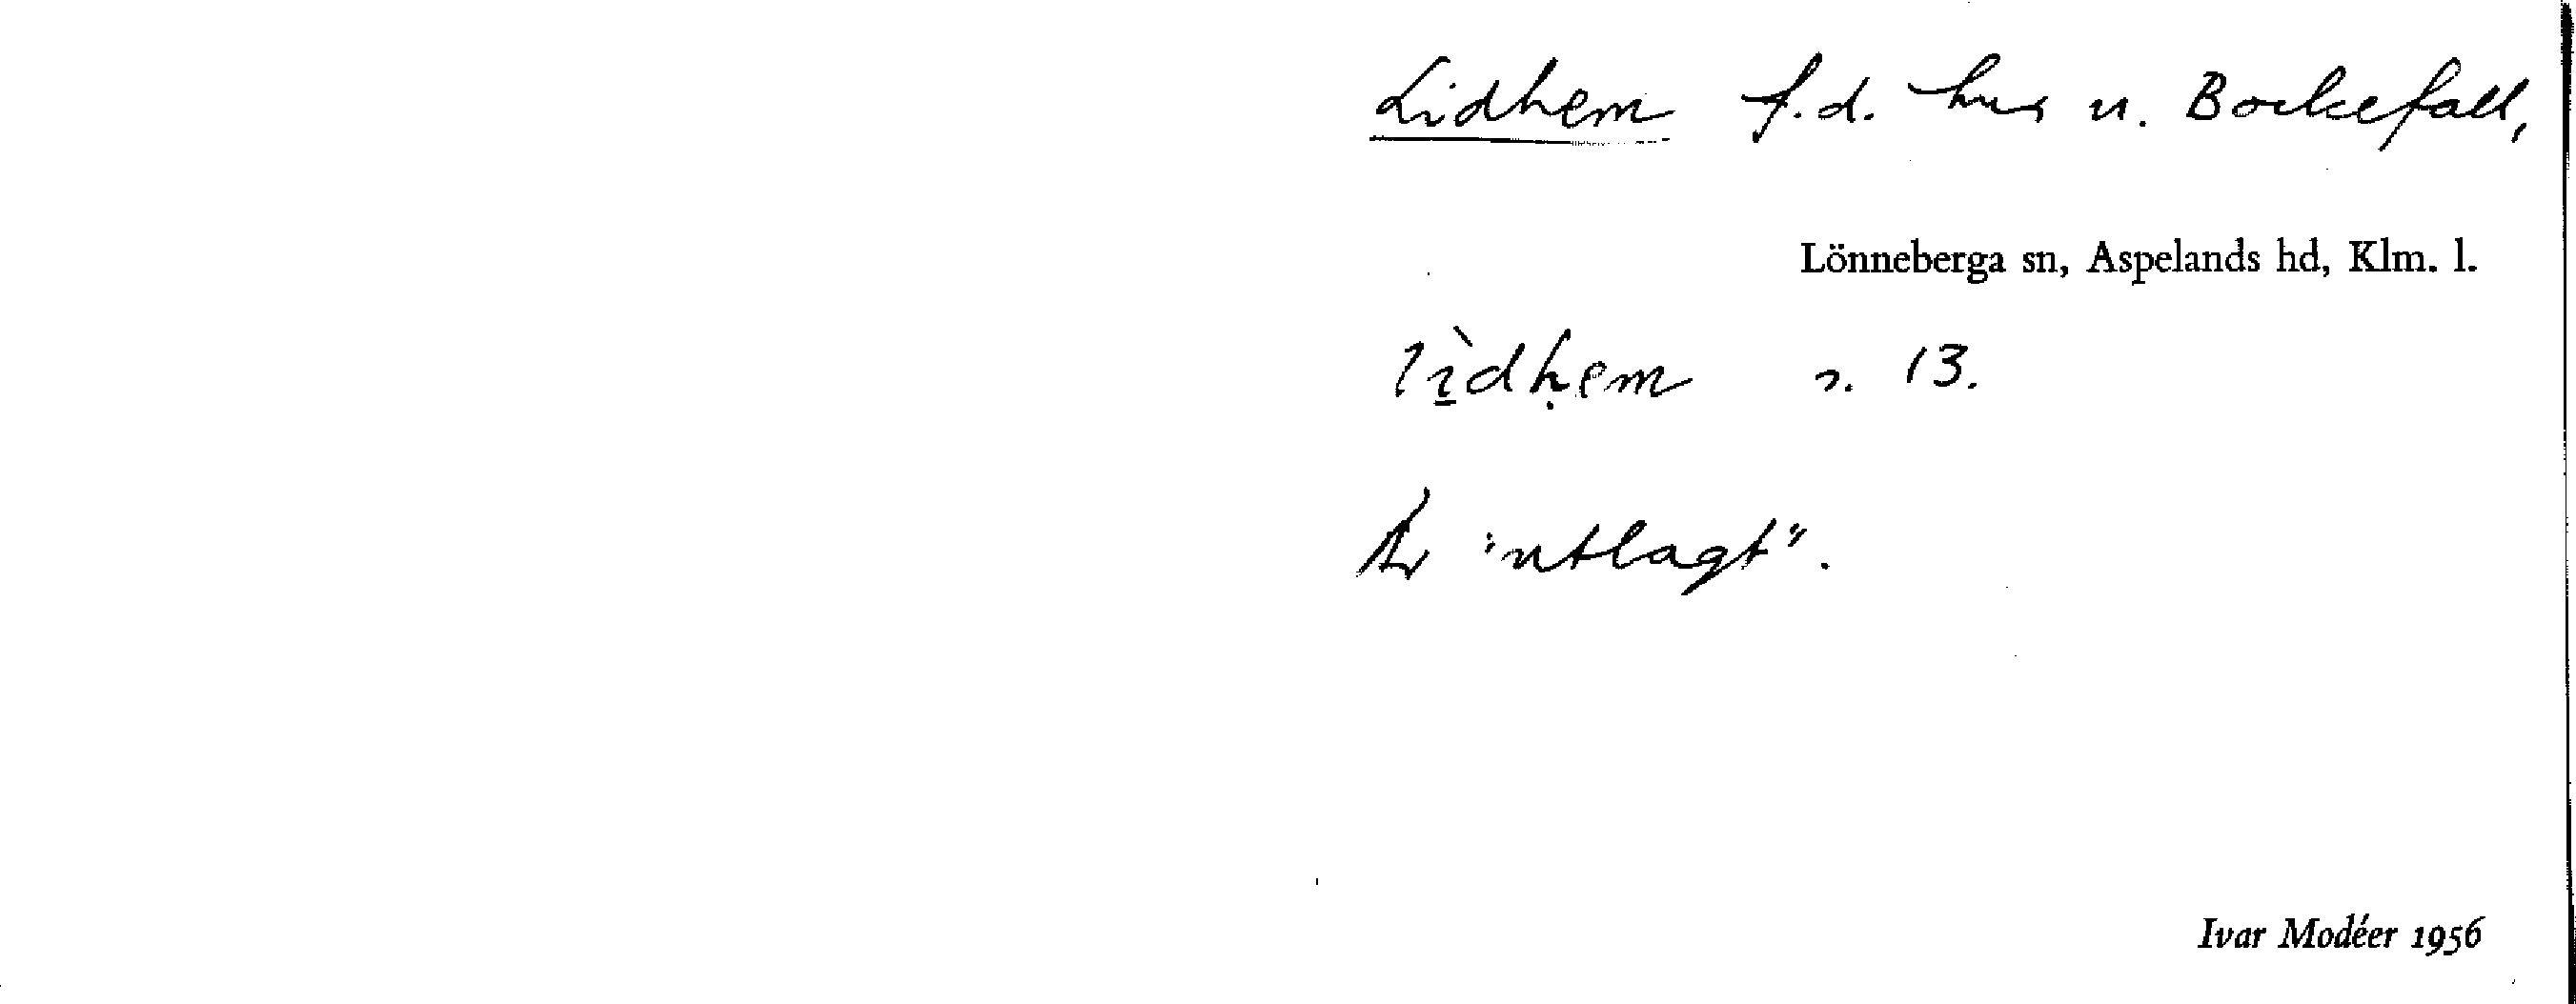 Lidhem f.d. hus u. Bockefall,
Lönneberga sn, Aspelands hd, Klm. l.
lìdḥem s. 13.
Är "utlagt".
Ivar Modéer 1956